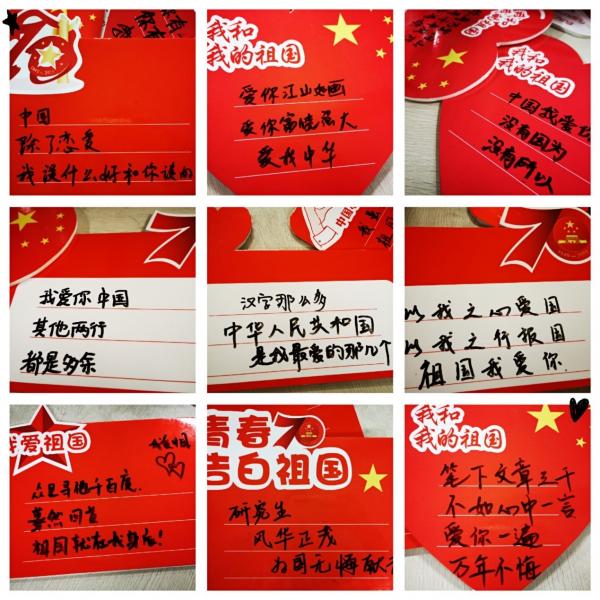 中国
除了恋爱
我没什么好和你谈的
我和
我的祖国
爱你江山如画
爱你富饶强大
爱我中华
我和
我的祖国
中国我爱你
没有因为
没有所以
我爱你中国
其他两行
都是多余
汉字那么多
中华人民共和国
是我最爱的那几个
以我之心爱国
以我之行报国
祖国我爱你
我爱祖国
众里寻他千百度
蓦然回首
祖国就在我身后!
青春70
告白祖国
研究生
风华正茂
为国无悔献
我和
我的祖国
笔下文章三千
不如心中一言
爱你一遍
万年不悔